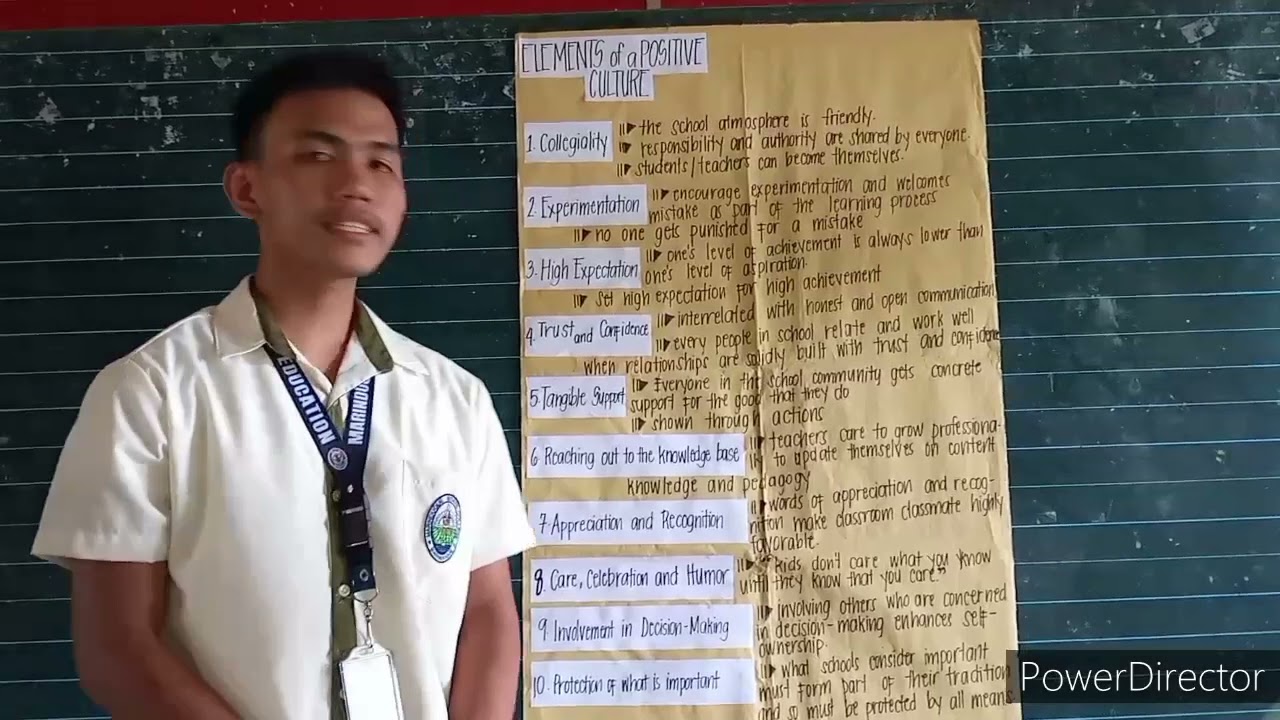 ELEMENTS of a POSITIVE
CULTURE
1. Collegiality
the school atmosphere is friendly.
responsibility and authority are shared by everyone.
students/teachers can become themselves.
2. Experimentation
encourage experimentation and welcomes
mistake as part of the learning process
no one gets punished for a mistake
3. High Expectation
one's level of achievement is always lower than
one's level of aspiration.
set high expectation for high achievement
4. Trust and Confidence
interrelated with honest and open communication
every people in school relate and work well
when relationships are solidly built with trust and confidence
5. Tangible Support
Everyone in the school community gets concrete
support for the good that they do
shown through actions
6. Reaching out to the knowledge base
teachers care to grow professiona-
to update themselves on content
knowledge and pedagogy
7. Appreciation and Recognition
words of appreciation and recog-
nition make classroom classmate highly
favorable.
8. Care, Celebration and Humor
"kids don't care what you know
until they know that you care."
9. Involvement in Decision-Making
involving others who are concerned
in decision-making enhances self-
ownership.
10. Protection of what is important
what schools consider important
must form part of their tradition
and so must be protected by all means
EDUCATION
MARINDU
PowerDirector